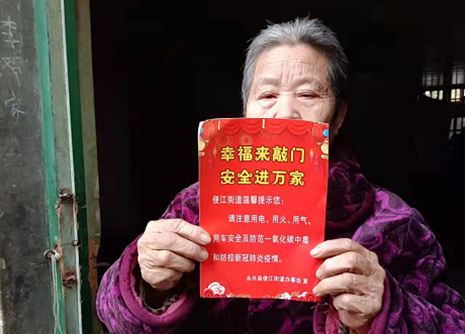 幸福来敲门
安全进万家
便江街道温馨提示您：
请注意用电、用火、用气、
用车安全及防范一氧化碳中毒
和防控新冠肺炎疫情。
永兴县便江街道办事处 宣